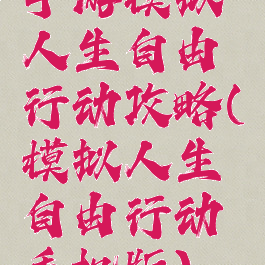 手游模拟
人生自由
行动攻略(
模拟人生
自由行动
手机版)